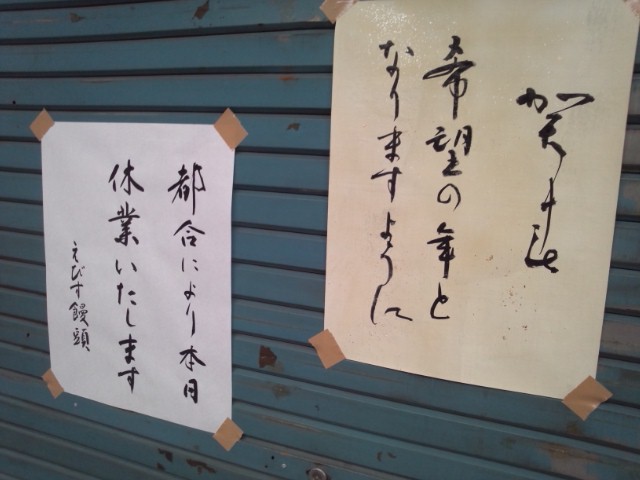 賀正
希望の年と
なりますように
都合により本日
休業いたします
えびす饅頭